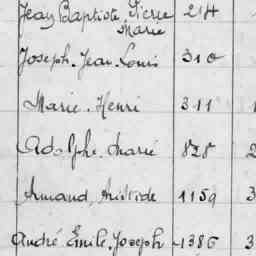 Jean Baptiste, Pierre 214
Marie
Joseph. Jean. Louis 310
Marie. Henri 311
Adolphe. Marie 828 2
Armand, Aristide 1159 3
André. Émile. Joseph 1386 3